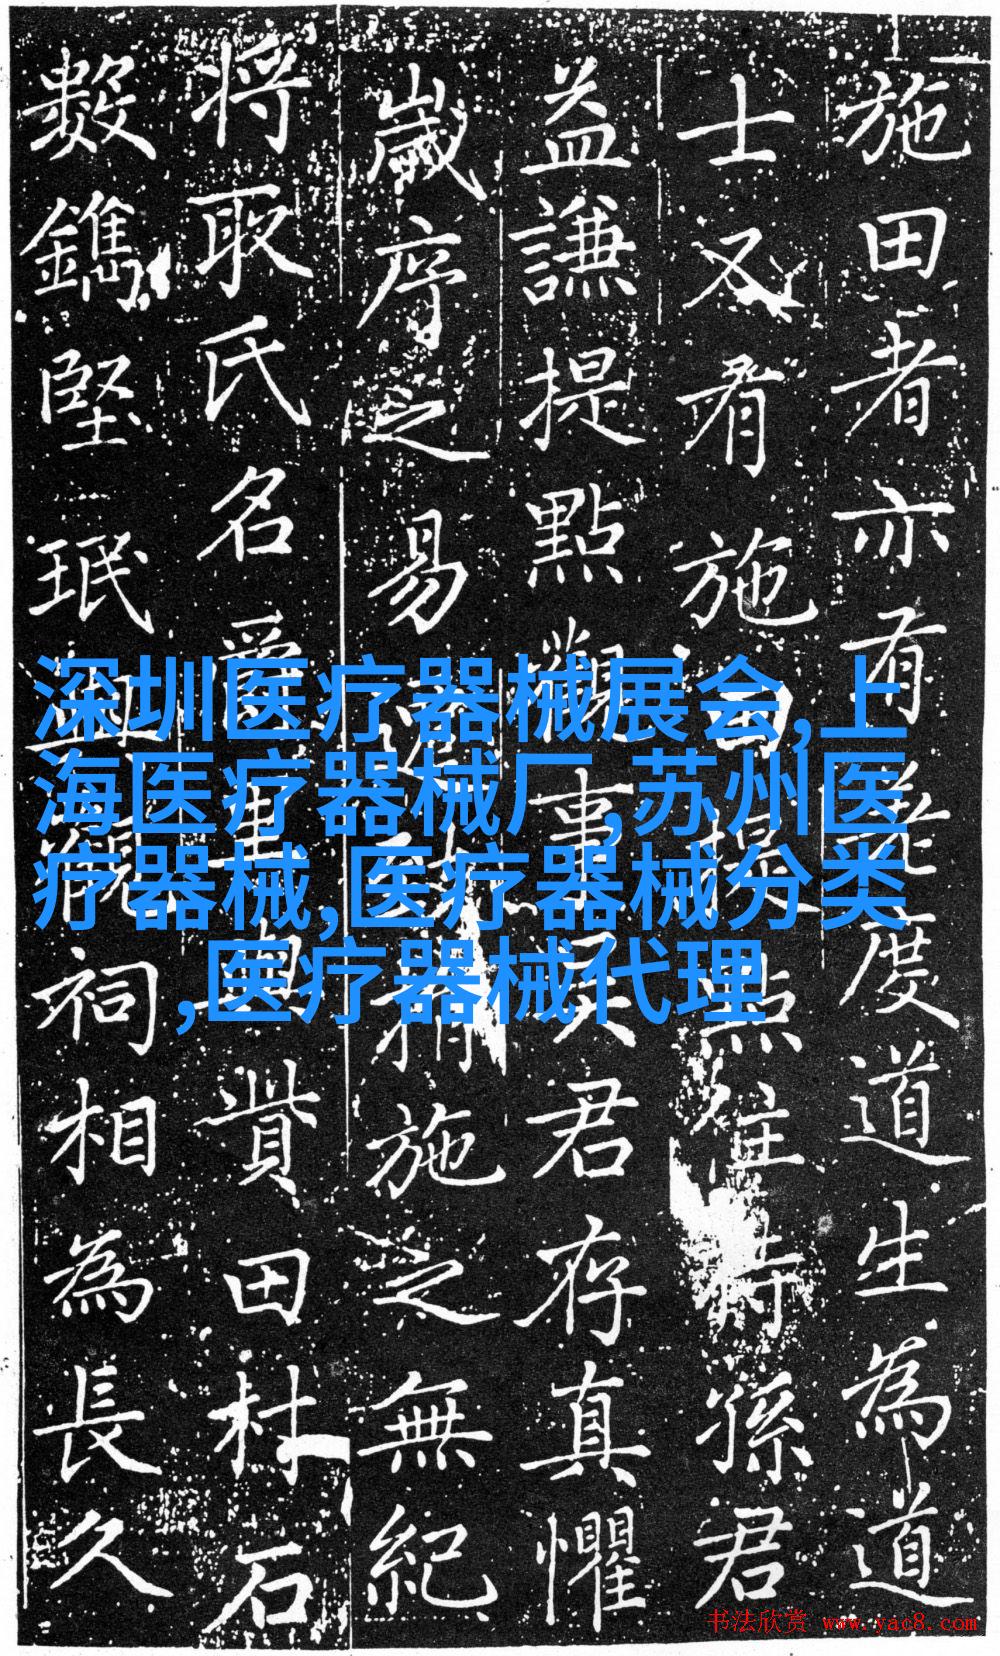 施田者亦有度道生為道
士又有施田提點住持孫君
益謙提點觀事吳君存真懼
歲序之易施之無紀
將取氏名貲田杜石
數鐫堅珉祠相為長久
深圳医疗器械展会,上
海医疗器械厂,苏州医
疗器械,医疗器械分类
,医疗器械代理
书法欣赏 www.yac8.com